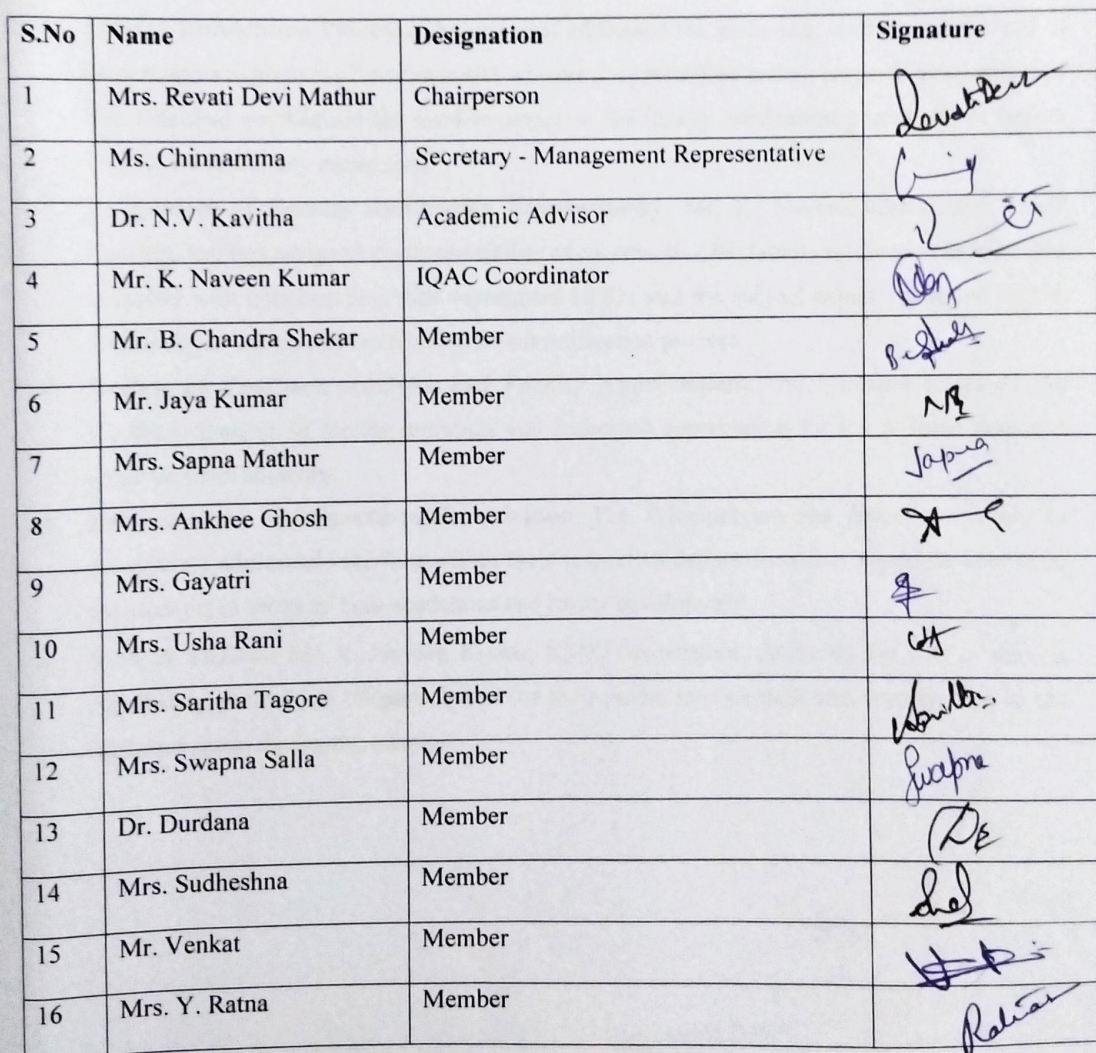 S.No Name Designation Signature
1 Mrs. Revati Devi Mathur Chairperson Revati Devi
2 Ms. Chinnamma Secretary - Management Representative
3 Dr. N.V. Kavitha Academic Advisor
4 Mr. K. Naveen Kumar IQAC Coordinator
5 Mr. B. Chandra Shekar Member
6 Mr. Jaya Kumar Member
7 Mrs. Sapna Mathur Member Sapna
8 Mrs. Ankhee Ghosh Member
9 Mrs. Gayatri Member
10 Mrs. Usha Rani Member
11 Mrs. Saritha Tagore Member
12 Mrs. Swapna Salla Member Swapna
13 Dr. Durdana Member
14 Mrs. Sudheshna Member
15 Mr. Venkat Member
16 Mrs. Y. Ratna Member